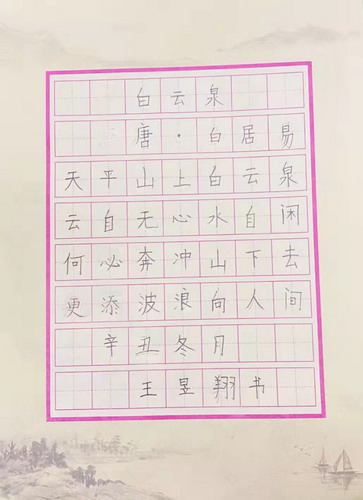 白云泉
唐·白居易
天平山上白云泉
云自无心水自闲
何必奔冲山下去
更添波浪向人间
辛丑冬月
王昱翔书